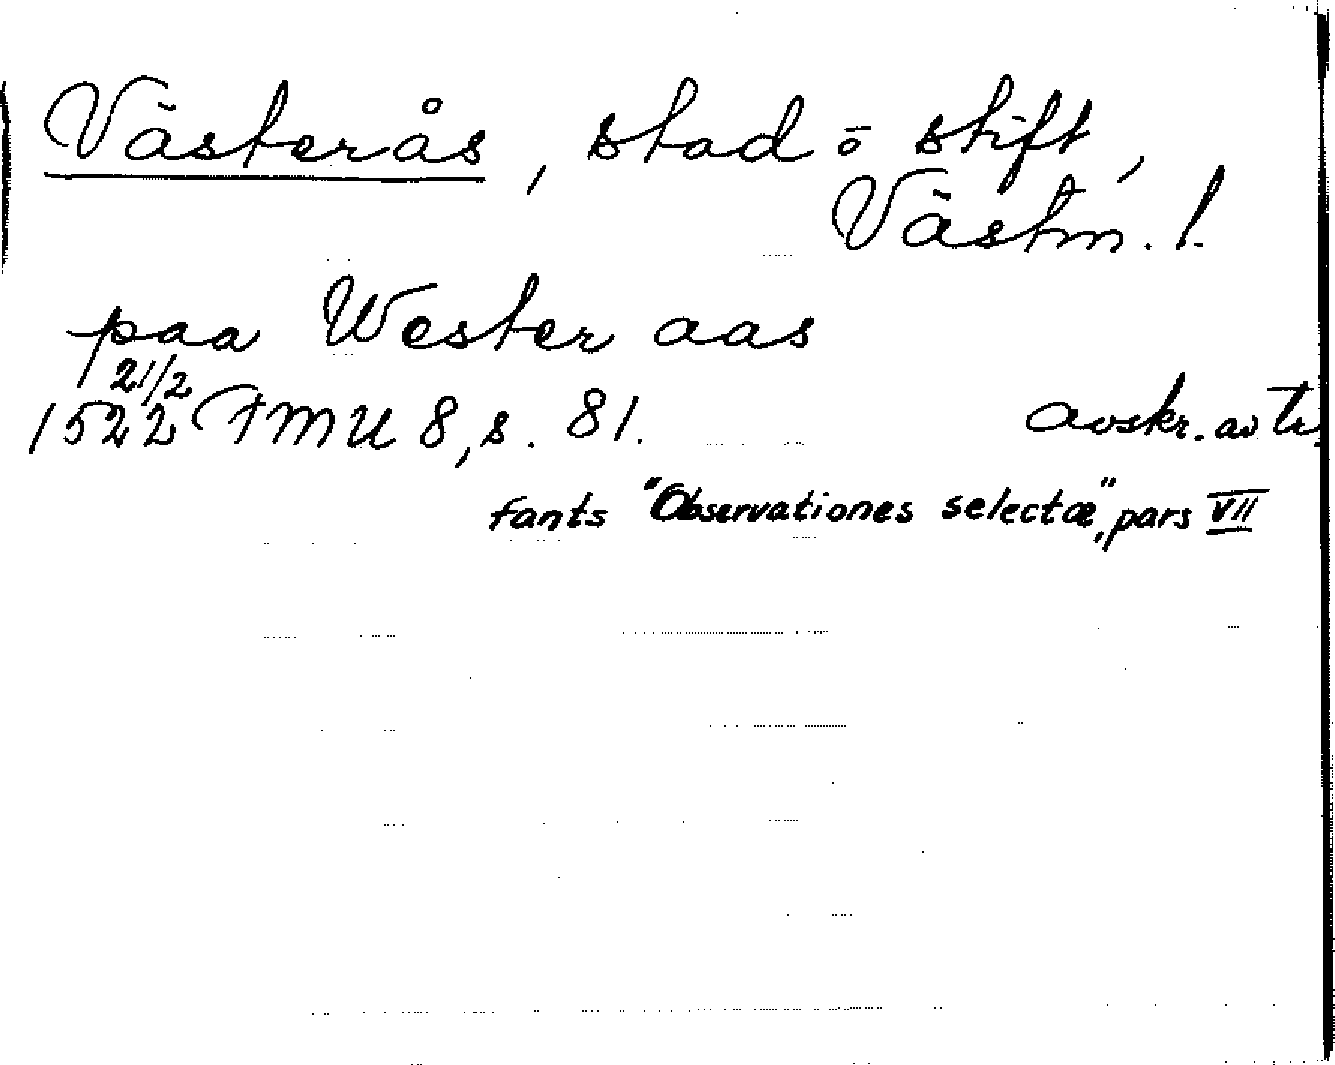 Västerås, stad ō stift,
Västm. l.
paa Wester aas
21/2
1522 FMU 8, s. 81. avskr. av tr.
fants "Observationes selectæ", pars VII